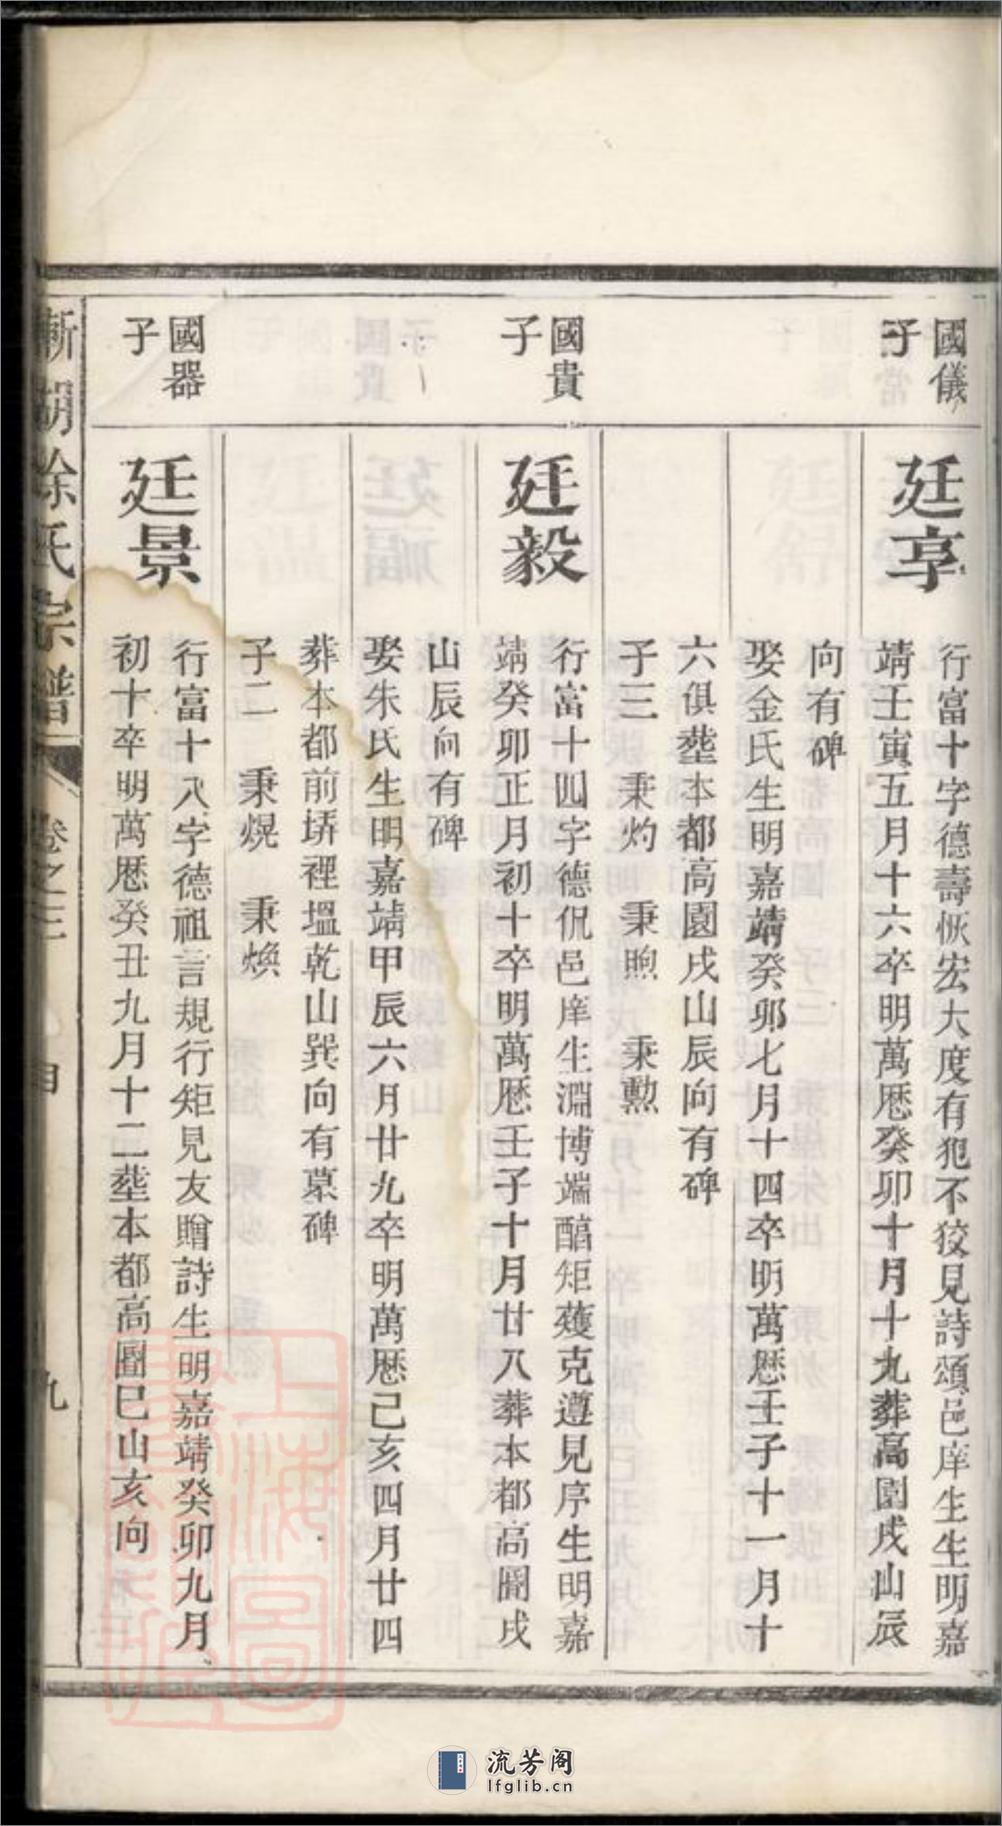 國儀
子
廷享
行富十字德壽恢宏大度有犯不狡見詩頌邑庠生生明嘉
靖壬寅五月十六卒明萬厯癸卯十月十九葬高園戌山辰
向有碑
娶金氏生明嘉靖癸卯七月十四卒明萬厯壬子十一月十
六俱塟本都高園戌山辰向有碑
子三　秉灼　秉煦　秉勲
國貴
子
廷毅
行富十四字德侃邑庠生淵博端醕矩矱克遵見序生明嘉
靖癸卯正月初十卒明萬厯壬子十月廿八葬本都高圖戌
山辰向有碑
娶朱氏生明嘉靖甲辰六月廿九卒明萬厯己亥四月廿四
葬本都前塝裡塭乾山巽向有墓碑
子二　秉熀　秉煥
國器
子
廷景
行富十八字德祖言規行矩見友贈詩生明嘉靖癸卯九月
初十卒明萬厯癸丑九月十二塟本都高圖巳山亥向
漸湖徐氏宗譜
卷之三
九
上海圖書館藏
流芳阁
lfglib.cn